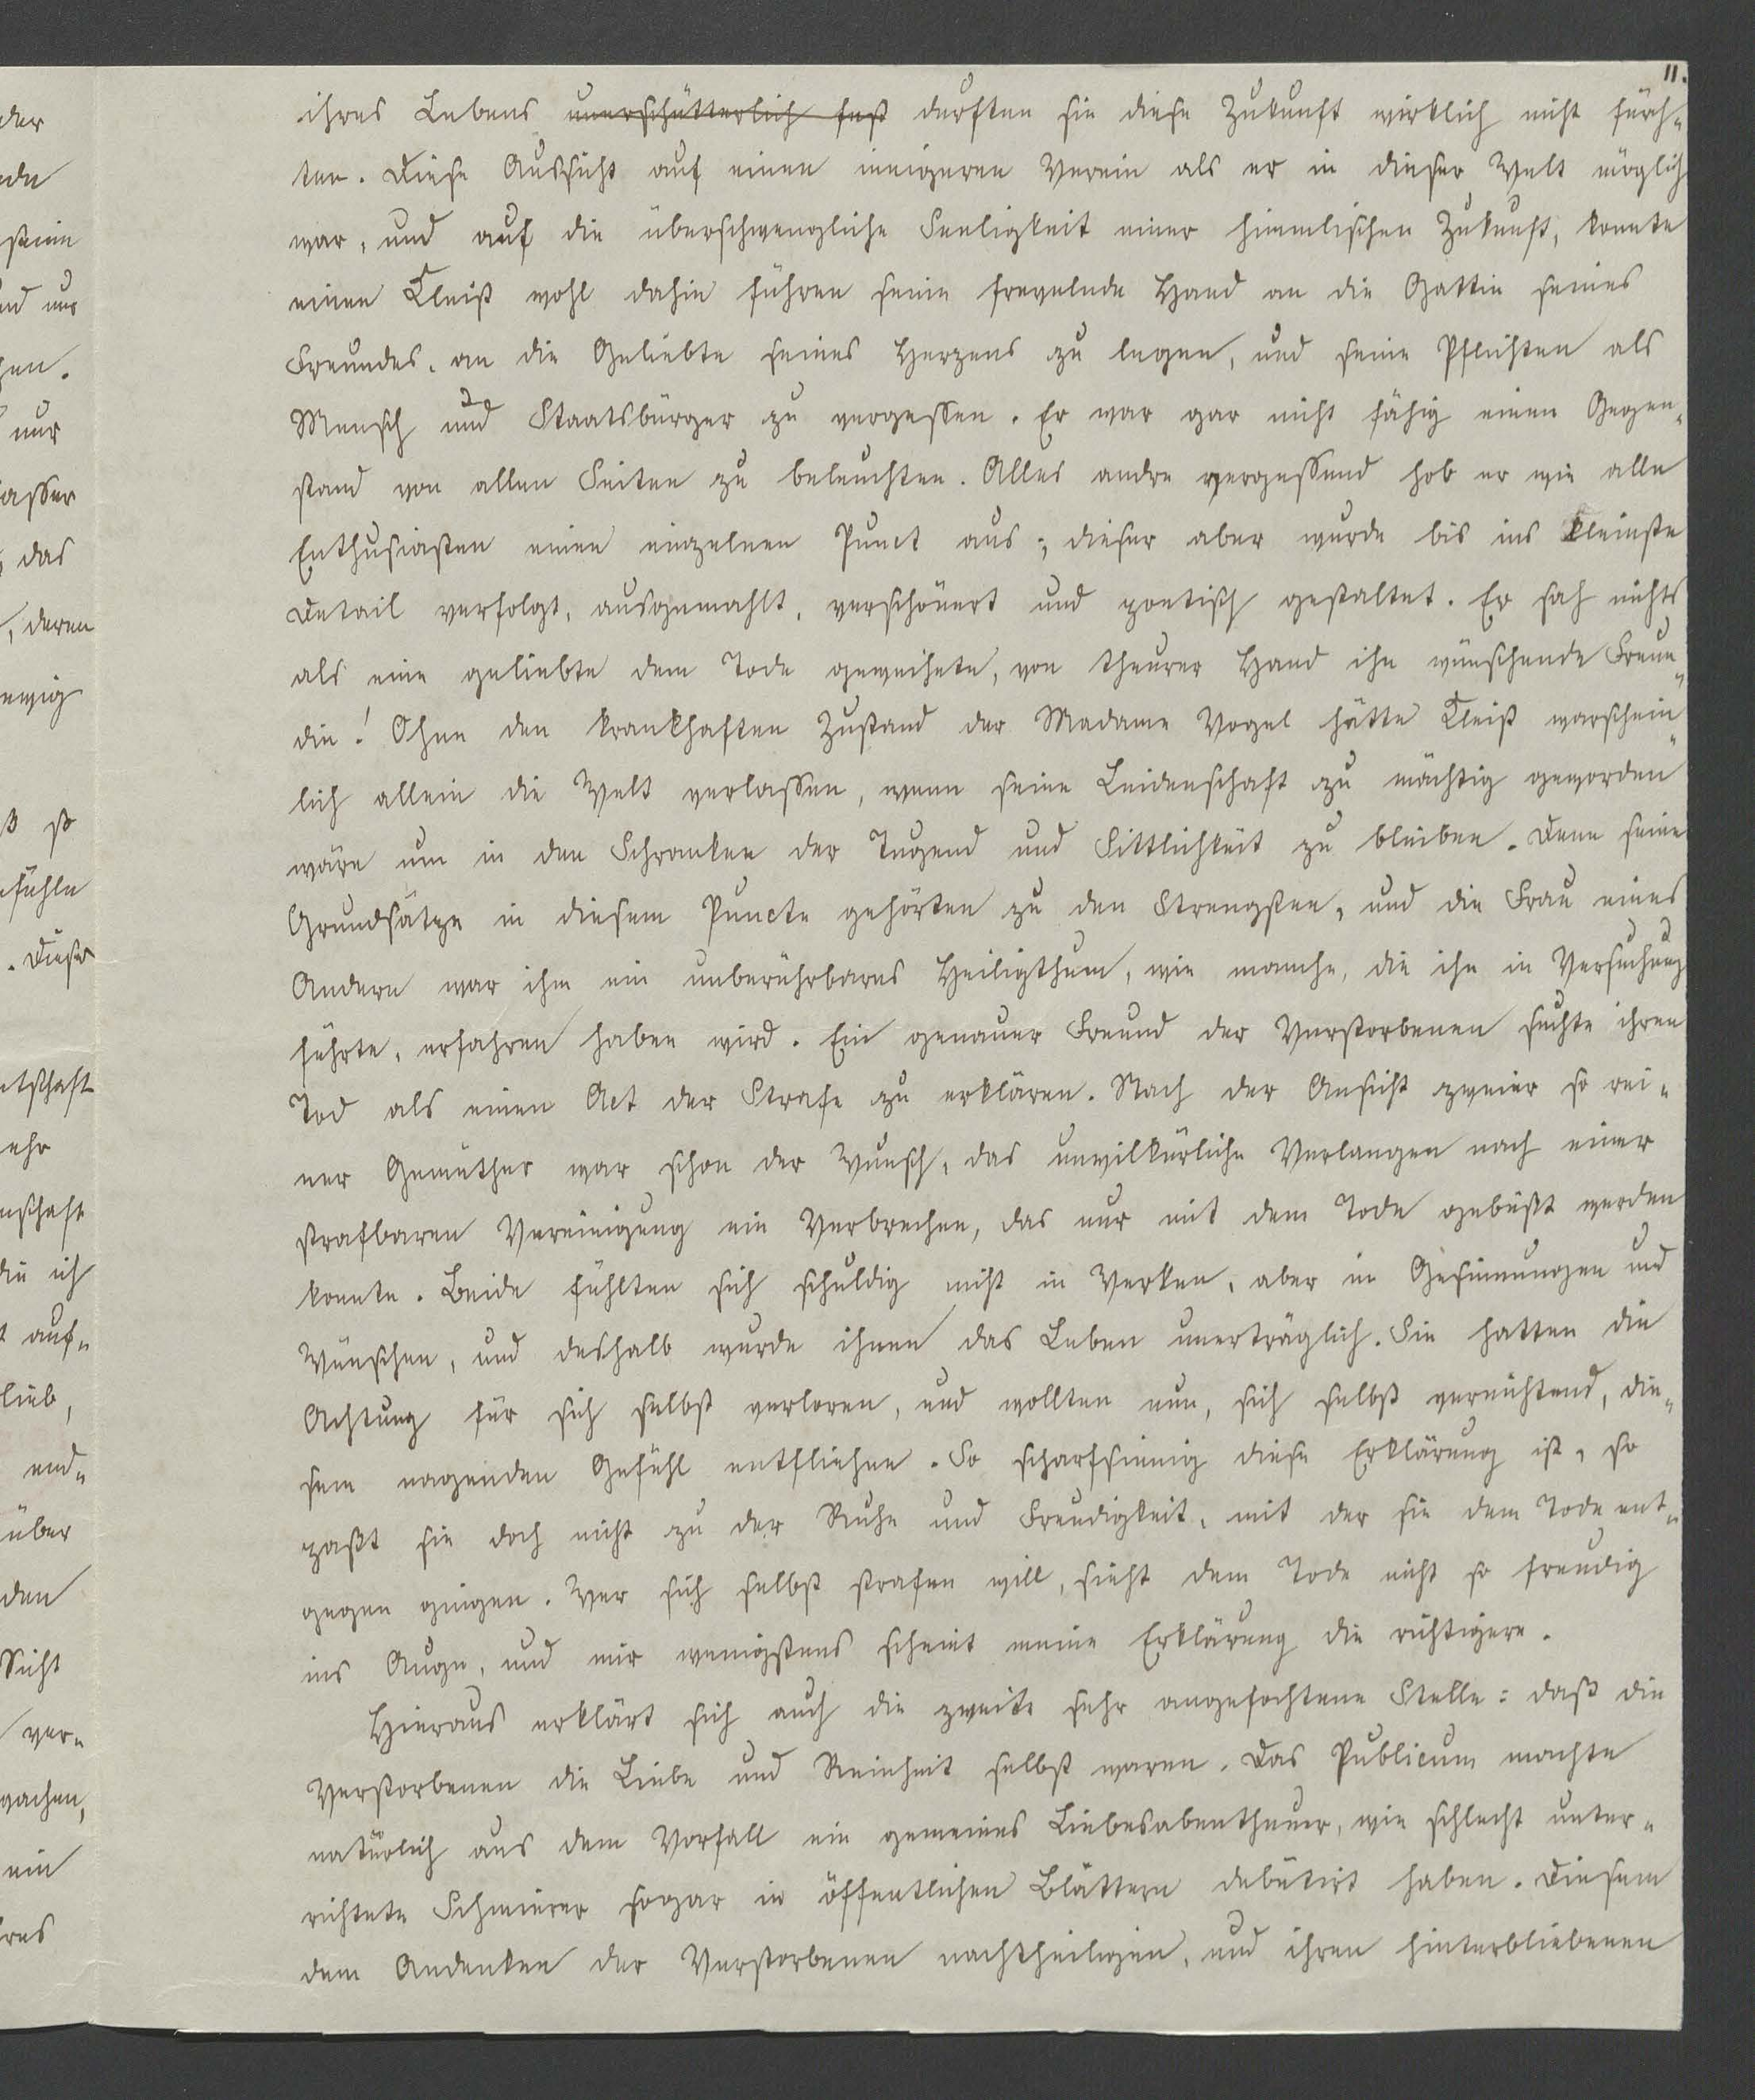 11.
ihres Lebens unerschütterlich fest durften sie diese Zukunft wirklich nicht fürch-
ten. Diese Aussicht auf einen innigeren Verein als er in dieser Welt möglich
war, und auf die überschwengliche Seeligkeit einer himmlischen Zukunft, konnte
einen Kleist wohl dahin führen seine frevelnde Hand an die Gattin seines
Freundes, an die Geliebte seines Herzens zu legen, und seine Pflichten als
Mensch und Staatsbürger zu vergessen. Er war gar nicht fähig einen Gegen-
stand von allen Seiten zu beleuchten. Alles andre vergessend hob er wie alle
Enthusiasten einen einzelnen Punct aus; dieser aber wurde bis ins kleinste
Detail verfolgt, ausgemahlt, verschönert und poetisch gestaltet. Er sah nichts
als eine geliebte dem Tode geweihete, von theurer Hand ihn wünschende Freun-
din! Ohne den krankhaften Zustand der Madame Vogel hätte Kleist warschein-
lich allein die Welt verlassen, wenn seine Leidenschaft zu mächtig geworden
wäre um in den Schranken der Tugend und Sittlichkeit zu bleiben. Denn seine
Grundsätze in diesem Puncte gehörten zu den Strengsten, und die Frau eines
Andern war ihm ein unberührbares Heiligthum, wie manche, die ihn in Versuchung
führte, erfahren haben wird. Ein genauer Freund der Verstorbenen suchte ihren
Tod als einen Act der Strafe zu erklären. Nach der Ansicht zweier so rei-
ner Gemüther war schon der Wunsch, das unwilkürliche Verlangen nach einer
strafbaren Vereinigung ein Verbrechen, das nur mit dem Tode gebüßt werden
konnte. Beide fühlten sich schuldig nicht in Werken, aber in Gesinnungen und
Wünschen, und deshalb wurde ihnen das Leben unerträglich. Sie hatten die
Achtung für sich selbst verloren, und wollten nun, sich selbst vernichtend, die-
sem nagenden Gefühl entfliehen. So scharfsinnig diese Erklärung ist, so
paßt sie doch nicht zu der Ruhe und Freudigkeit, mit der sie dem Tode ent-
gegen gingen. Wer sich selbst strafen will, sieht dem Tode nicht so freudig
ins Auge, und mir wenigstens scheint meine Erklärung die richtigere.
Hieraus erklärt sich auch die zweite sehr angefochtene Stelle: daß die
Verstorbenen die Liebe und Reinheit selbst waren. Das Publicum machte
natürlich aus dem Vorfall ein gemeines Liebesabentheuer, wie schlecht unter-
richtete Schmierer sogar in öffentlichen Blättern debütirt haben. Diesem
dem Andenken der Verstorbenen nachtheiligen, und ihren hinterbliebenen